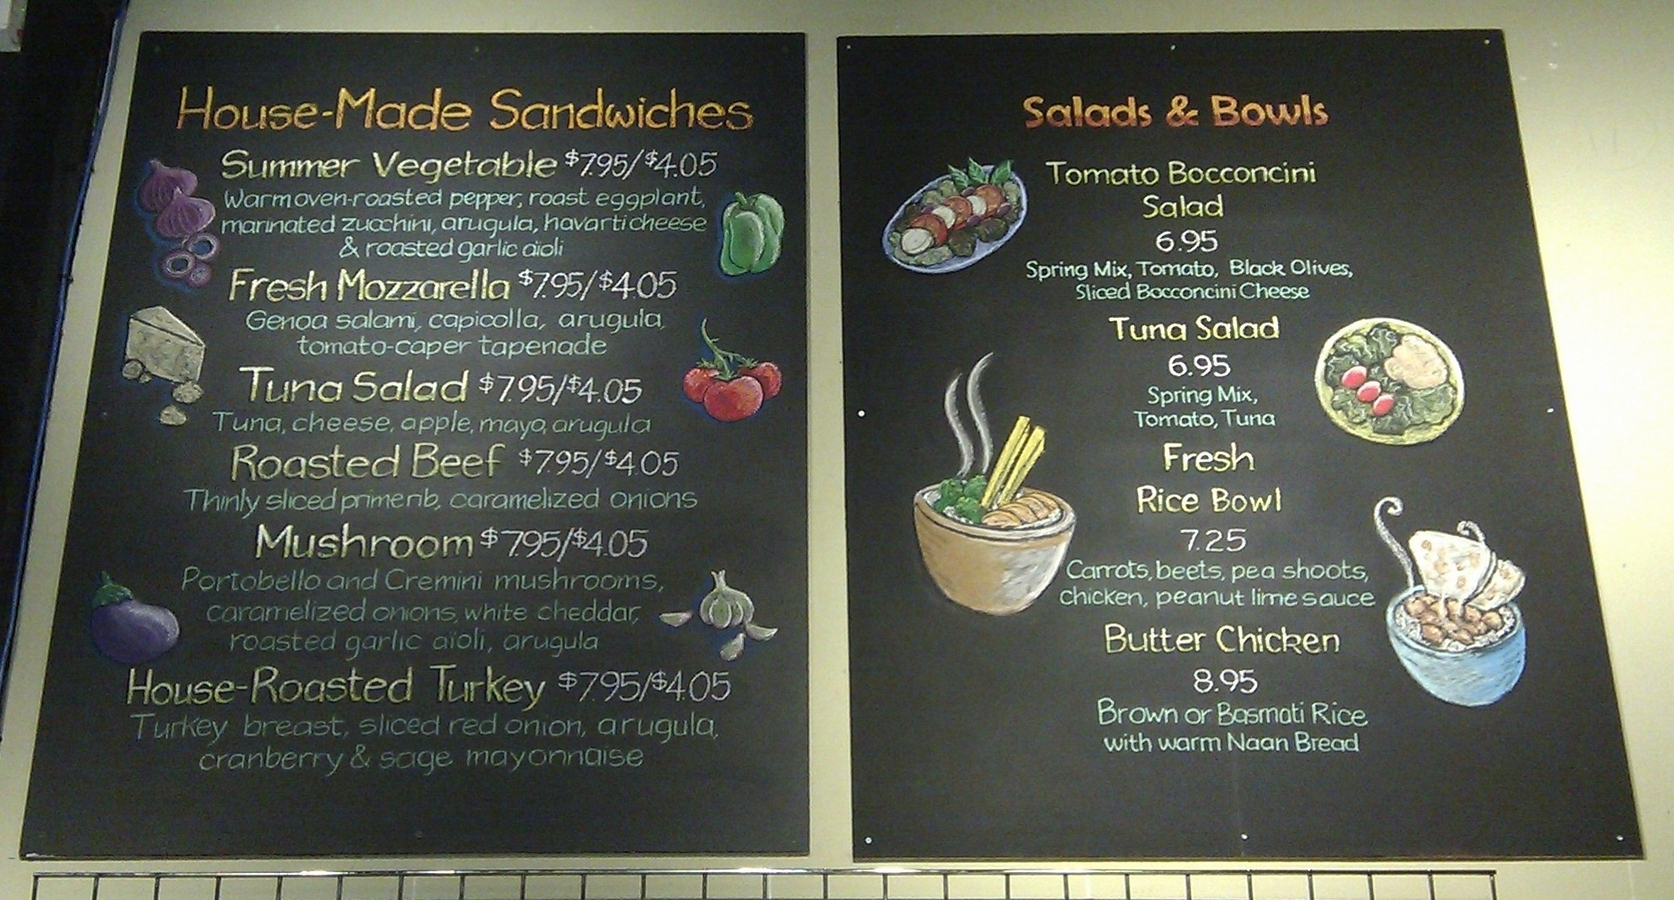 House-Made Sandwiches
Summer Vegetable $7.95/$4.05
Warm oven-roasted pepper, roast eggplant,
marinated zucchini, arugula, havarti cheese
& roasted garlic aïoli
Fresh Mozzarella $7.95/$4.05
Genoa salami, capicolla, arugula,
tomato-caper tapenade
Tuna Salad $7.95/$4.05
Tuna, cheese, apple, mayo, arugula
Roasted Beef $7.95/$4.05
Thinly sliced prime rib, caramelized onions
Mushroom $7.95/$4.05
Portobello and Cremini mushrooms,
caramelized onions, white cheddar,
roasted garlic aïoli, arugula
House-Roasted Turkey $7.95/$4.05
Turkey breast, sliced red onion, arugula,
cranberry & sage mayonnaise
Salads & Bowls
Tomato Bocconcini
Salad
6.95
Spring Mix, Tomato, Black Olives,
Sliced Bocconcini Cheese
Tuna Salad
6.95
Spring Mix,
Tomato, Tuna
Fresh
Rice Bowl
7.25
Carrots, beets, pea shoots,
chicken, peanut lime sauce
Butter Chicken
8.95
Brown or Basmati Rice
with warm Naan Bread